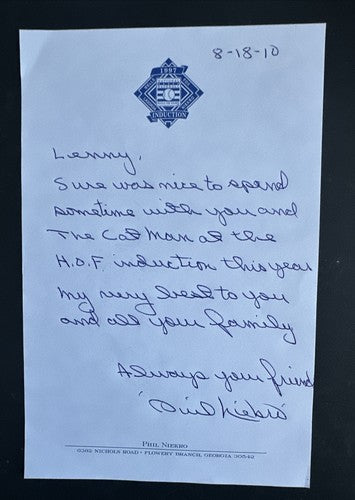 8-18-10
1997
NATIONAL
BASEBALL
INDUCTION
Lenny,
Sure was nice to spend
sometime with you and
The Cat Man at the
H.O.F. induction this year
My very best to you
and all your family
Always your friend
Phil Niekro
PHIL NIEKRO
6382 NICHOLS ROAD · FLOWERY BRANCH, GEORGIA 30542